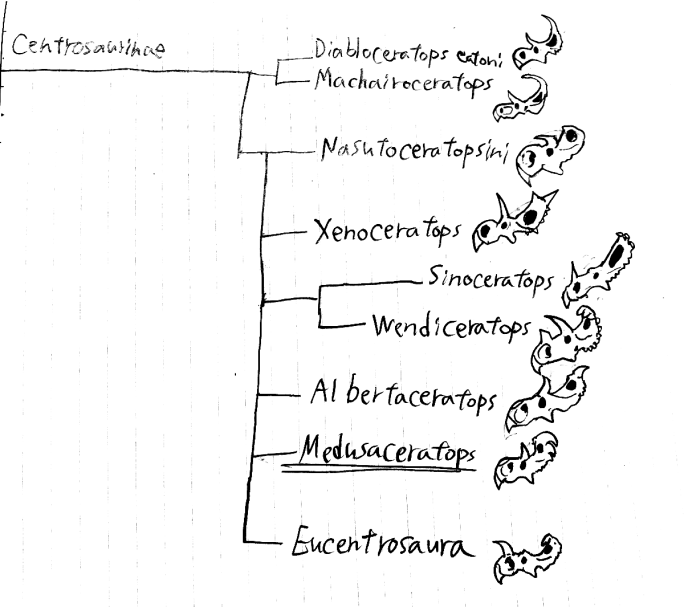 Centrosaurinae
Diabloceratops eatoni
Machairoceratops
Nasutoceratopsini
Xenoceratops
Sinoceratops
Wendiceratops
Albertaceratops
Medusaceratops
Eucentrosaura